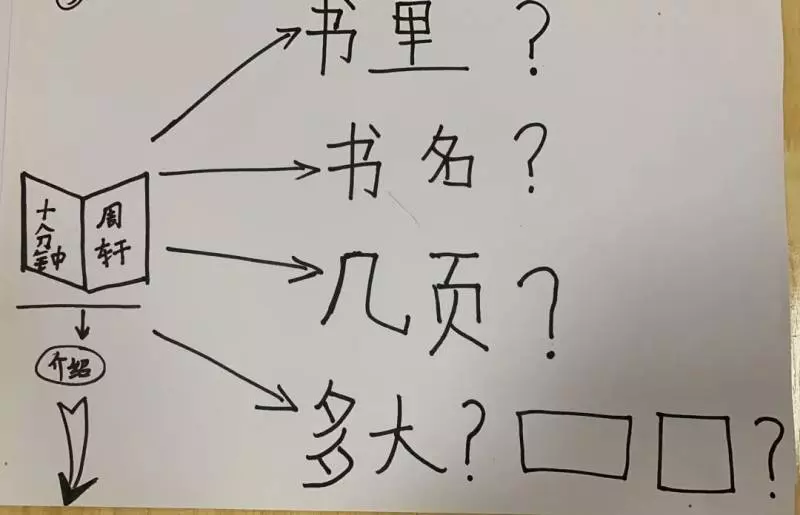 书里?
书名?
十分钟
周轩
几页?
介绍
多大? ?